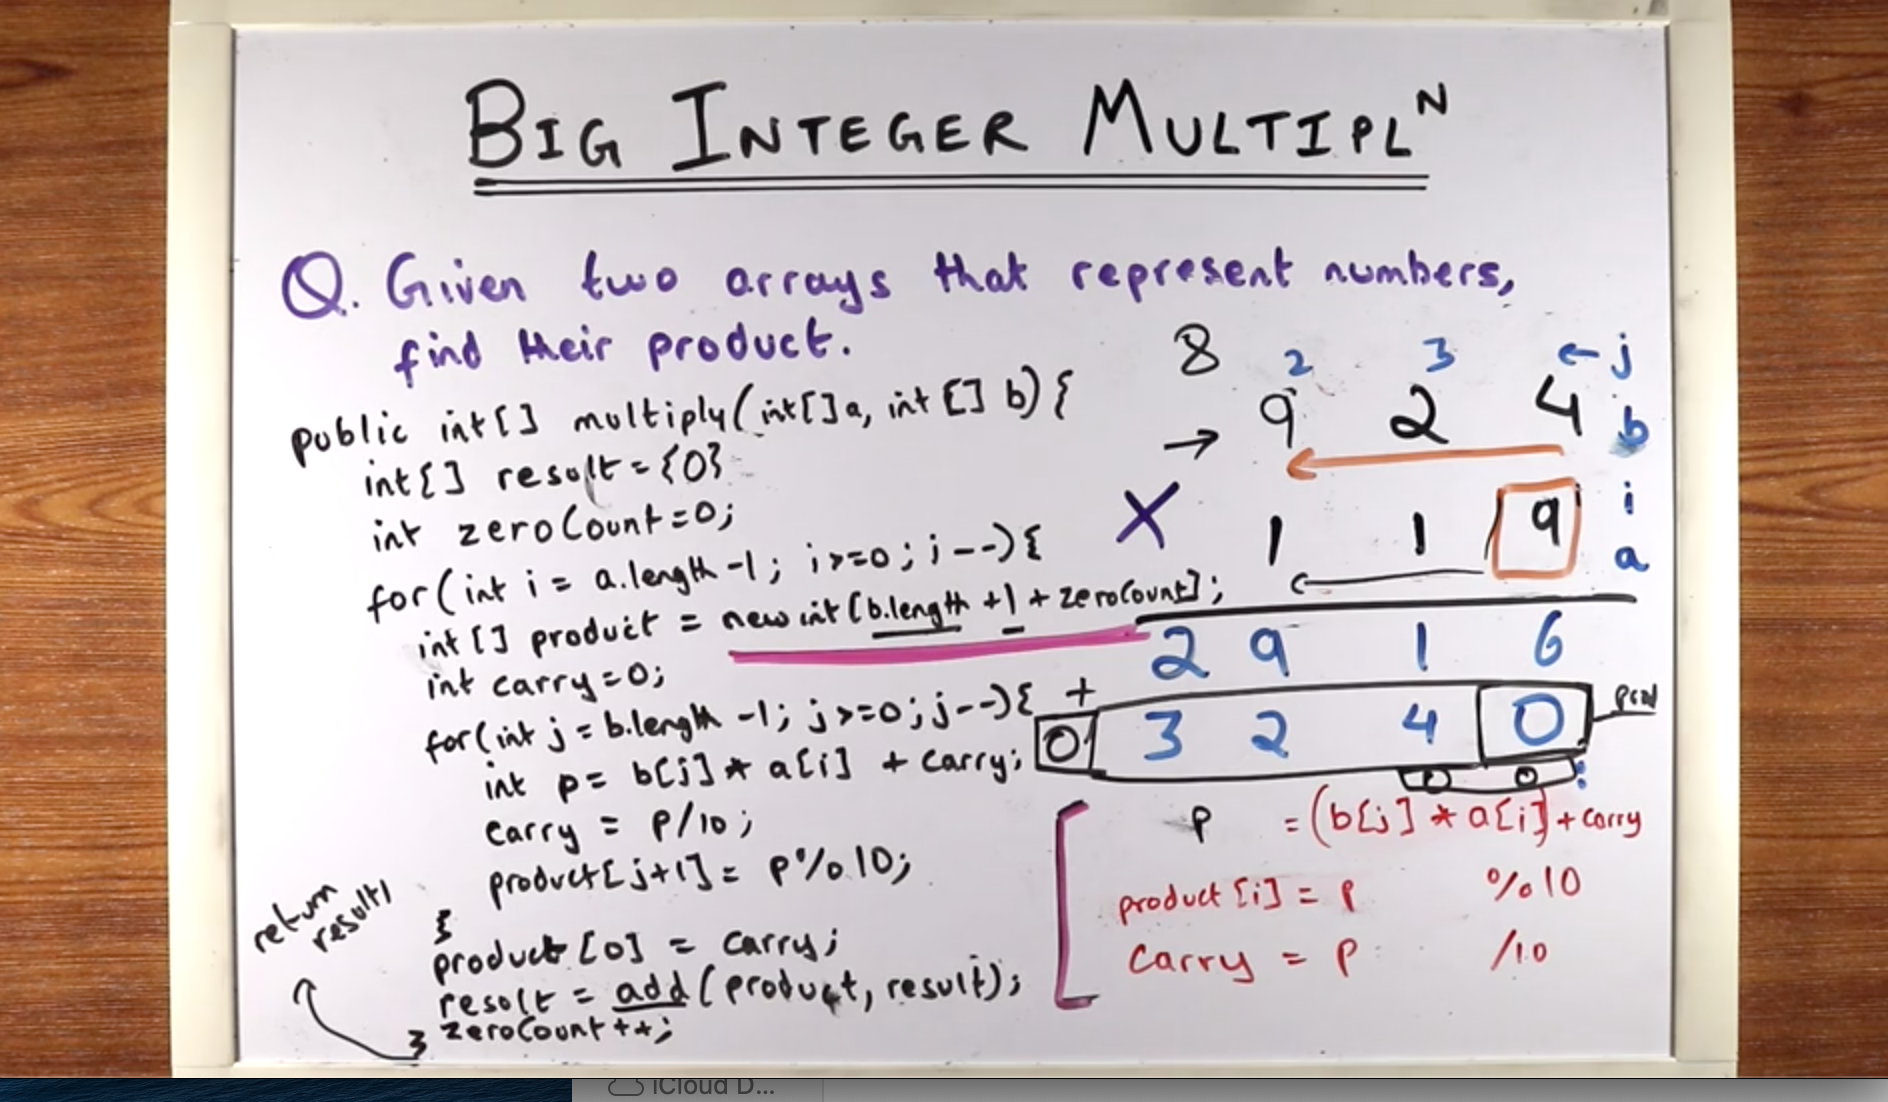 BIG INTEGER MULTIPLᴺ
Q. Given two arrays that represent numbers,
find their product.
public int[] multiply(int[]a, int[] b){
int[] result={0}
int zeroCount=0;
for(int i = a.length-1; i>=0; i--){
int[] product = new int[b.length +1 + zeroCount];
int carry=0;
for(int j = b.length -1; j>=0; j--){
int p= b[j]* a[i] + carry;
carry = p/10;
product[j+1]= p%10;
}
product[0] = carry;
result = add(product, result);
zeroCount++;
}
return
result
8 2 3 ← j
→ 9 2 4 b
i
X 1 1 9
a
2 9 1 6
+
0 3 2 4 0
p = (b[j] * a[i]) + carry
product[i] = p %10
carry = p /10
iCloud D...